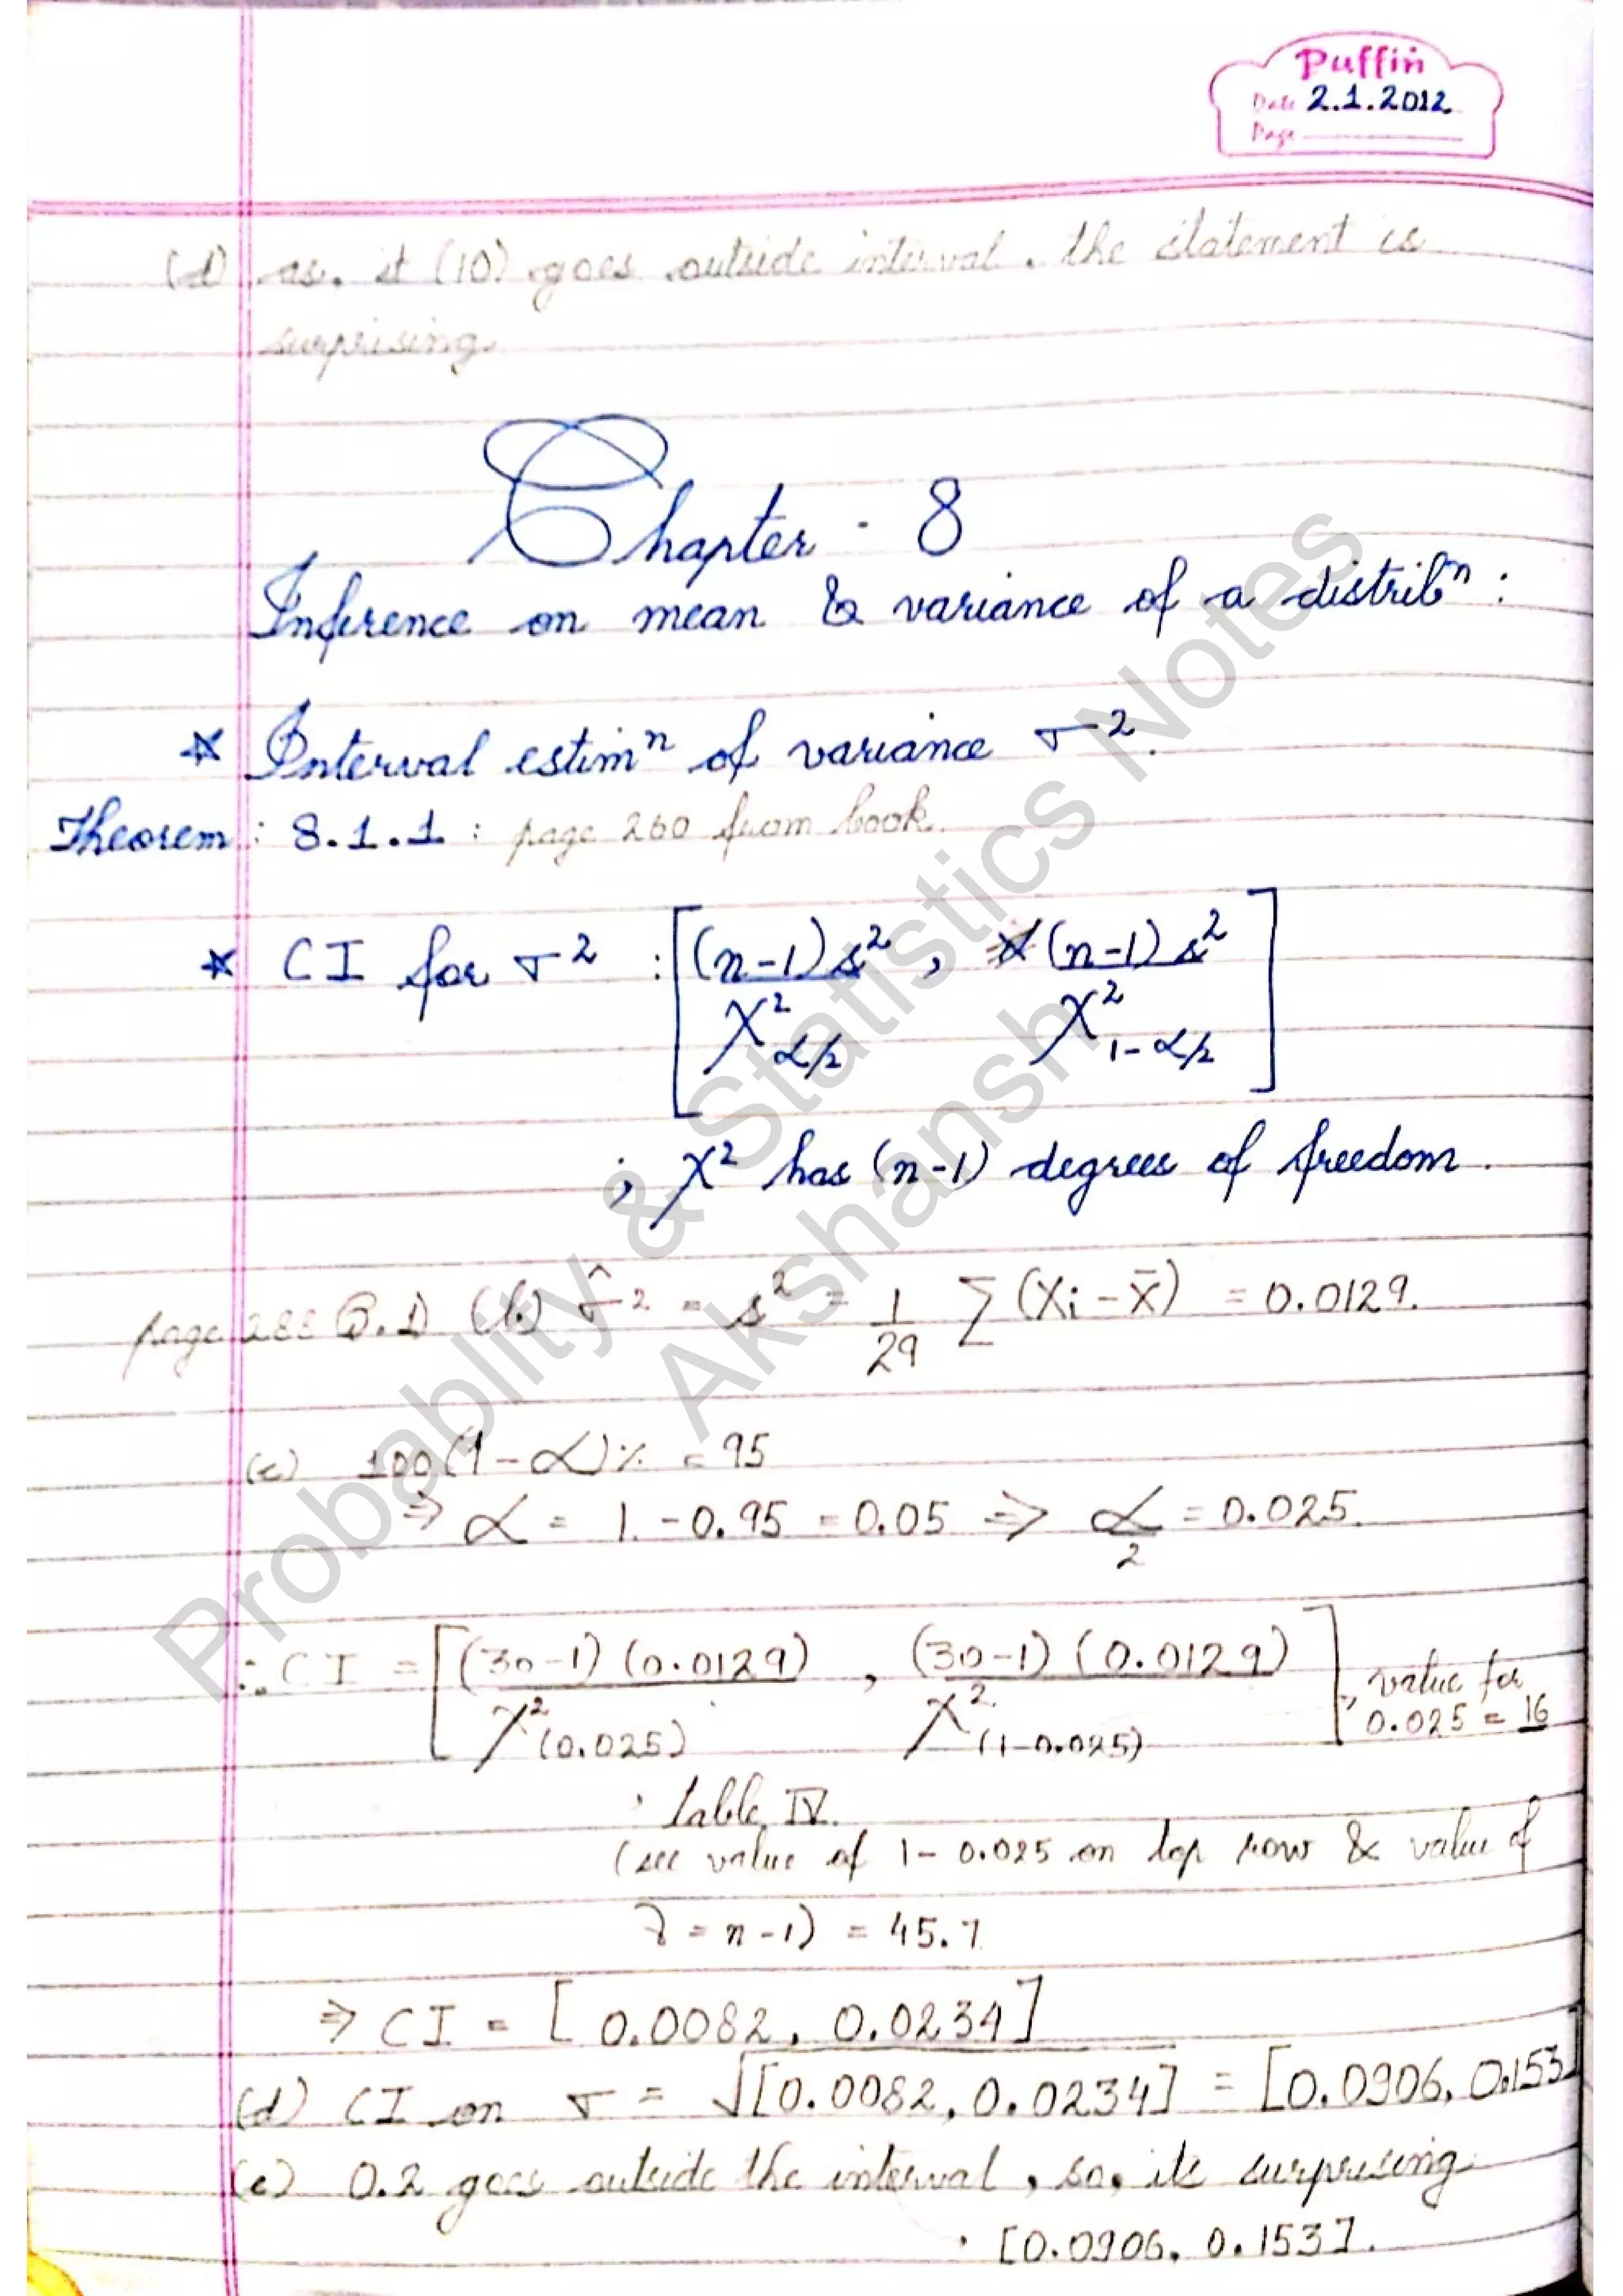 Puffin
Date 2.1.2012
Page
(d) as. it (10) goes outside interval. the statement is
surprising.
Chapter - 8
Inference on mean & variance of a distribⁿ :
* Interval estimⁿ of variance σ².
Theorem : 8.1.1 : page 260 from book.
* CI for σ² : [ (n-1)s² / χ²_α/2 , (n-1)s² / χ²_1-α/2 ]
; χ² has (n-1) degrees of freedom.
page 288 8.1) (b) σ̂² = s² = 1/29 Σ (Xi - x̄) = 0.0129.
(c) 100(1-α)% = 95
⇒ α = 1 - 0.95 = 0.05 ⇒ α/2 = 0.025.
∴ CI = [ (30-1) (0.0129) / χ²(0.025) , (30-1) (0.0129) / χ²(1-0.025) ] , value for
0.025 = 16
Table IV.
(see value of 1-0.025 on top row & value of
γ = n-1) = 45.7
⇒ CI = [0.0082, 0.0234]
(d) CI on σ = √[0.0082, 0.0234] = [0.0906, 0.153]
(e) 0.2 goes outside the interval, so, its surprising.
[0.0906, 0.153].
Probablity & Statistics Notes
Akshansh